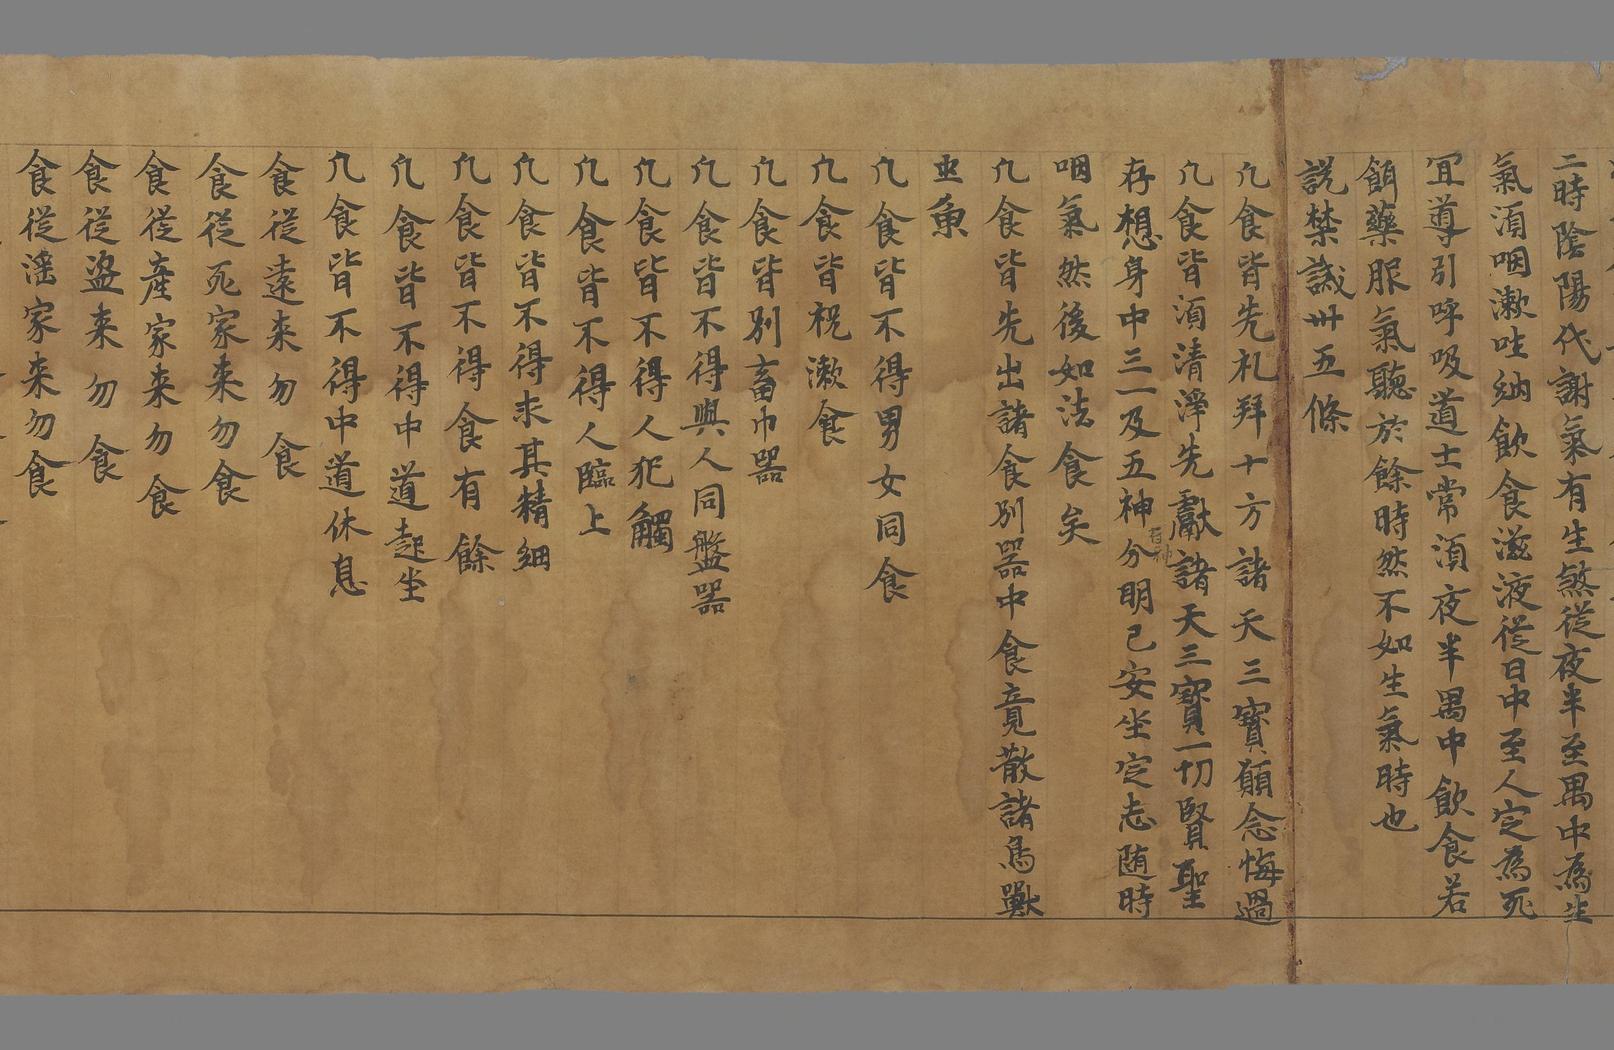 二時陰陽代謝氣有生煞從夜半至禺中為生
氣湏咽漱吐納飲食滋液從日中至人定為死
冝導引呼吸道士常湏夜半禺中飲食若
餌藥服氣聽於餘時然不如生氣時也
說禁誡卌五條
凢食皆先礼拜十方諸天三寶願念悔過
凢食皆湏清淨先獻諸天三寶一切賢聖
存想身中三一及五神分明已安坐定志随時
咽氣然後如法食矣
凢食皆先出諸食別器中食竟散諸鳥獸
虫魚
凢食皆不得男女同食
凢食皆祝漱食
凢食皆別畜巾器
凢食皆不得與人同盤器
凢食皆不得人犯觸
凢食皆不得人臨上
凢食皆不得求其精細
凢食皆不得食有餘
凢食皆不得中道起坐
凢食皆不得中道休息
食從遠来勿食
食從死家来勿食
食從產家来勿食
食從盗来勿食
食從淫家来勿食